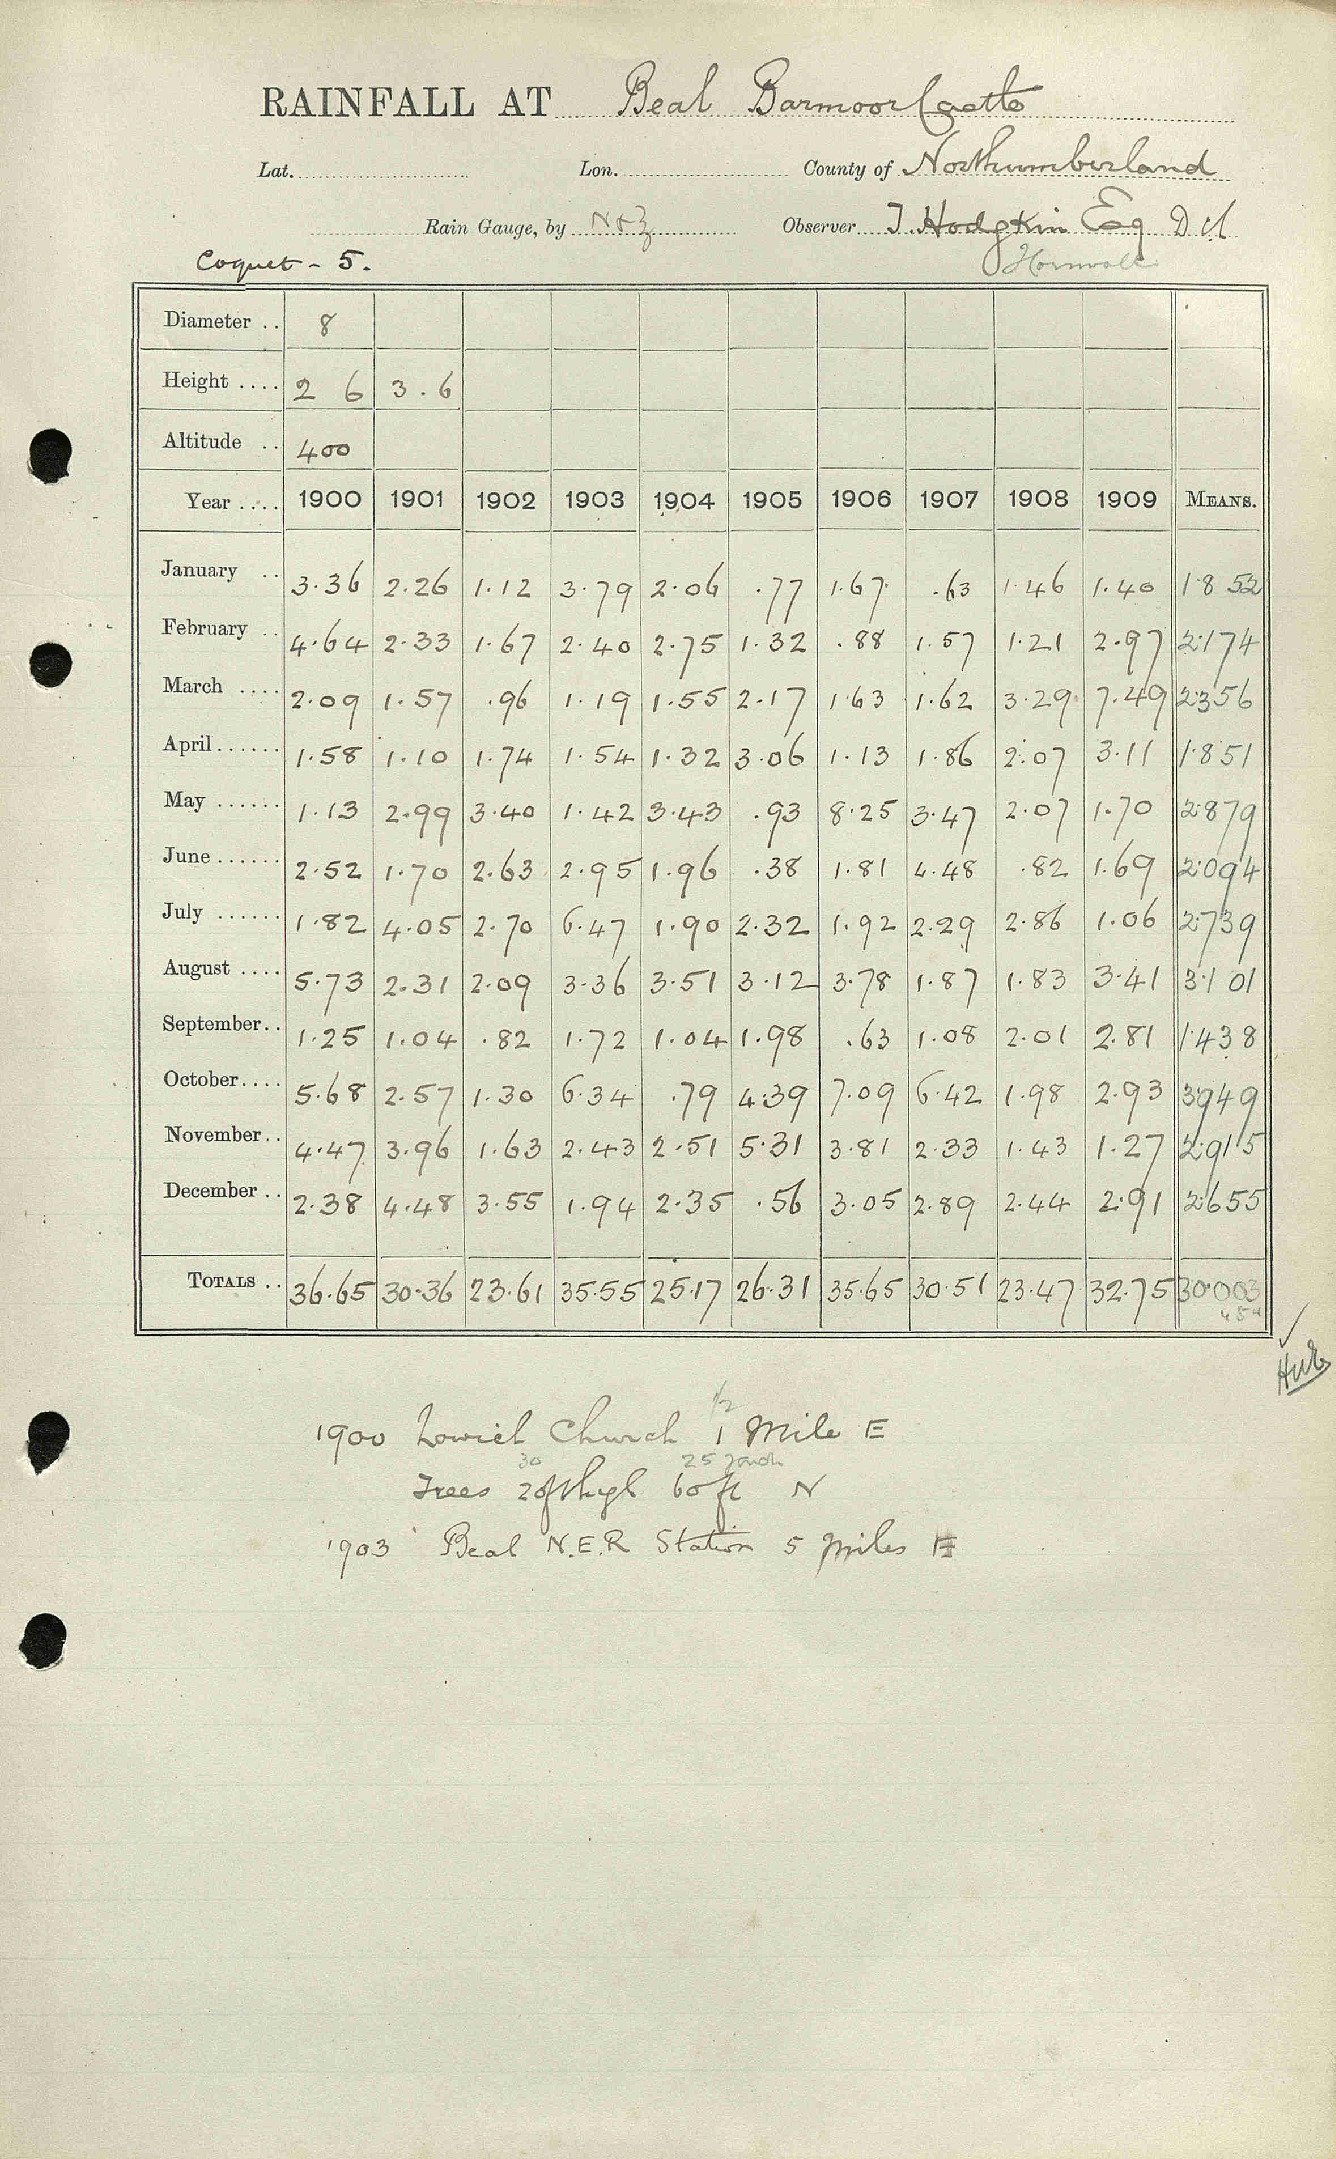 RAINFALL AT Beal Barmoor Castle
Lat. Lon. County of Northumberland
Rain Gauge, by N & Z Observer T. Hodgkin Esq D C L
Coquet - 5.
Diameter .. 8
Height .... 2 6 3.6
Altitude .. 400
Year .... 1900 1901 1902 1903 1904 1905 1906 1907 1908 1909 MEANS.
January .. 3.36 2.26 1.12 3.79 2.06 .77 1.67 .63 1.46 1.40 1.852
February .. 4.64 2.33 1.67 2.40 2.75 1.32 .88 1.57 1.21 2.97 2.174
March .... 2.09 1.57 .96 1.19 1.55 2.17 1.63 1.62 3.29 7.49 2.356
April ...... 1.58 1.10 1.74 1.54 1.32 3.06 1.13 1.86 2.07 3.11 1.851
May ...... 1.13 2.99 3.40 1.42 3.43 .93 8.25 3.47 2.07 1.70 2.879
June ...... 2.52 1.70 2.63 2.95 1.96 .38 1.81 4.48 .82 1.69 2.094
July ...... 1.82 4.05 2.70 6.47 1.90 2.32 1.92 2.29 2.86 1.06 2.739
August .... 5.73 2.31 2.09 3.36 3.51 3.12 3.78 1.87 1.83 3.41 3.101
September.. 1.25 1.04 .82 1.72 1.04 1.98 .63 1.08 2.01 2.81 1.438
October.... 5.68 2.57 1.30 6.34 .79 4.39 7.09 6.42 1.98 2.93 3.949
November.. 4.47 3.96 1.63 2.43 2.51 5.31 3.81 2.33 1.43 1.27 2.915
December .. 2.38 4.48 3.55 1.94 2.35 .56 3.05 2.89 2.44 2.91 2.655
TOTALS .. 36.65 30.36 23.61 35.55 25.17 26.31 35.65 30.51 23.47 32.75 30.003
1/2
1900 Lowick Church 1 Mile E
30 25 yards
Trees 20ft high 60 ft N
1903 Beal N.E.R Station 5 miles E